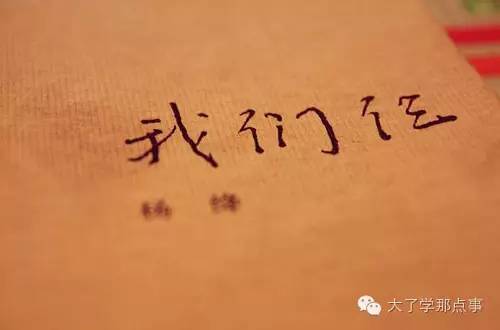 我们仨
杨 绛
大了学那点事